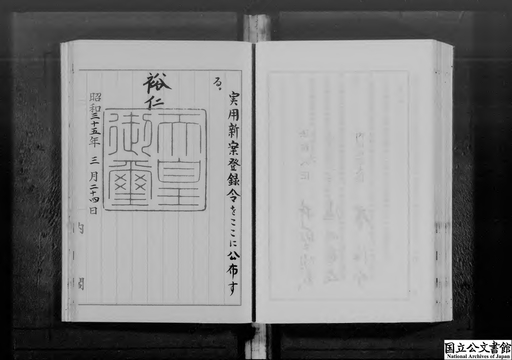 実用新案登録令をここに公布す
る。
裕仁
天皇
御璽
昭和三十五年三月二十四日
内閣
国立公文書館
National Archives of Japan